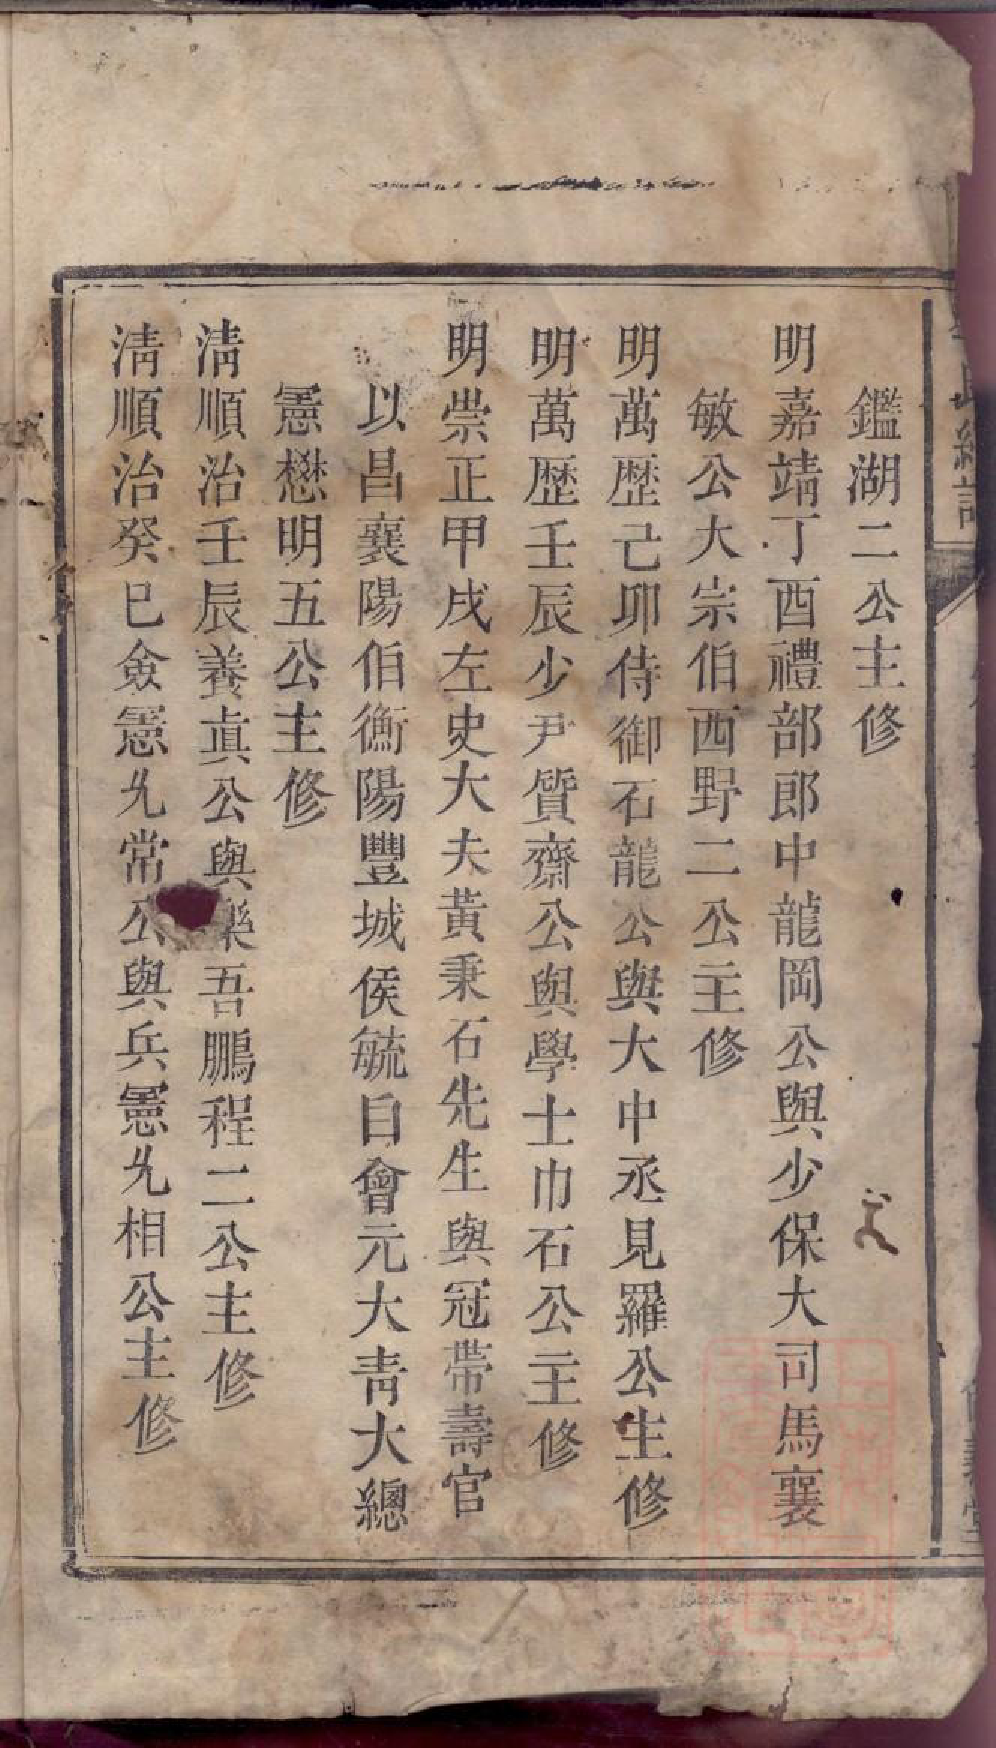 鑑湖二公主修
明嘉靖丁酉禮部郎中龍岡公與少保大司馬襄
敏公大宗伯西野二公主修
明萬歷己卯侍御石龍公與大中丞見羅公生修
明萬歷壬辰少尹質齋公與學士巾石公主修
明崇正甲戌左史大夫黃秉石先生與冠帶壽官
以昌襄陽伯衡陽豐城侯毓白會元大靑大總
憲懋明五公主修
淸順治壬辰養眞公與樂吾鵬程二公主修
淸順治癸巳僉憲九常公與兵憲九相公主修